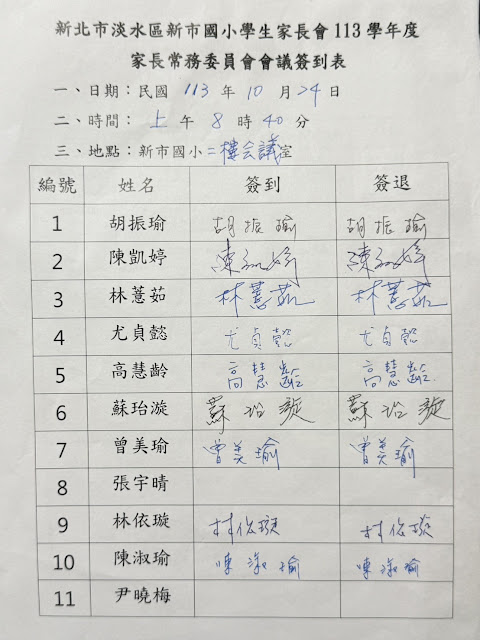 新北市淡水區新市國小學生家長會 113 學年度
家長常務委員會會議簽到表
一、日期：民國 113 年 10 月 24 日
二、時間： 上 午 8 時 40 分
三、地點：新市國小二樓會議室
編號 姓名 簽到 簽退
1 胡振瑜 胡振瑜 胡振瑜
2 陳凱婷 陳凱婷 陳凱婷
3 林薏茹 林薏茹 林薏茹
4 尤貞懿 尤貞懿 尤貞懿
5 高慧齡 高慧齡 高慧齡
6 蘇珆漩 蘇珆漩 蘇珆漩
7 曾美瑜 曾美瑜 曾美瑜
8 張宇晴
9 林依璇 林依璇 林依璇
10 陳淑瑜 陳淑瑜 陳淑瑜
11 尹曉梅